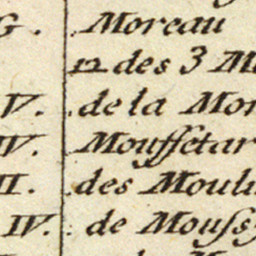 G. Moreau
12 des 3 M
V. de la Mor
IV. Mouffetar
II. des Mouli
IV. de Moussy